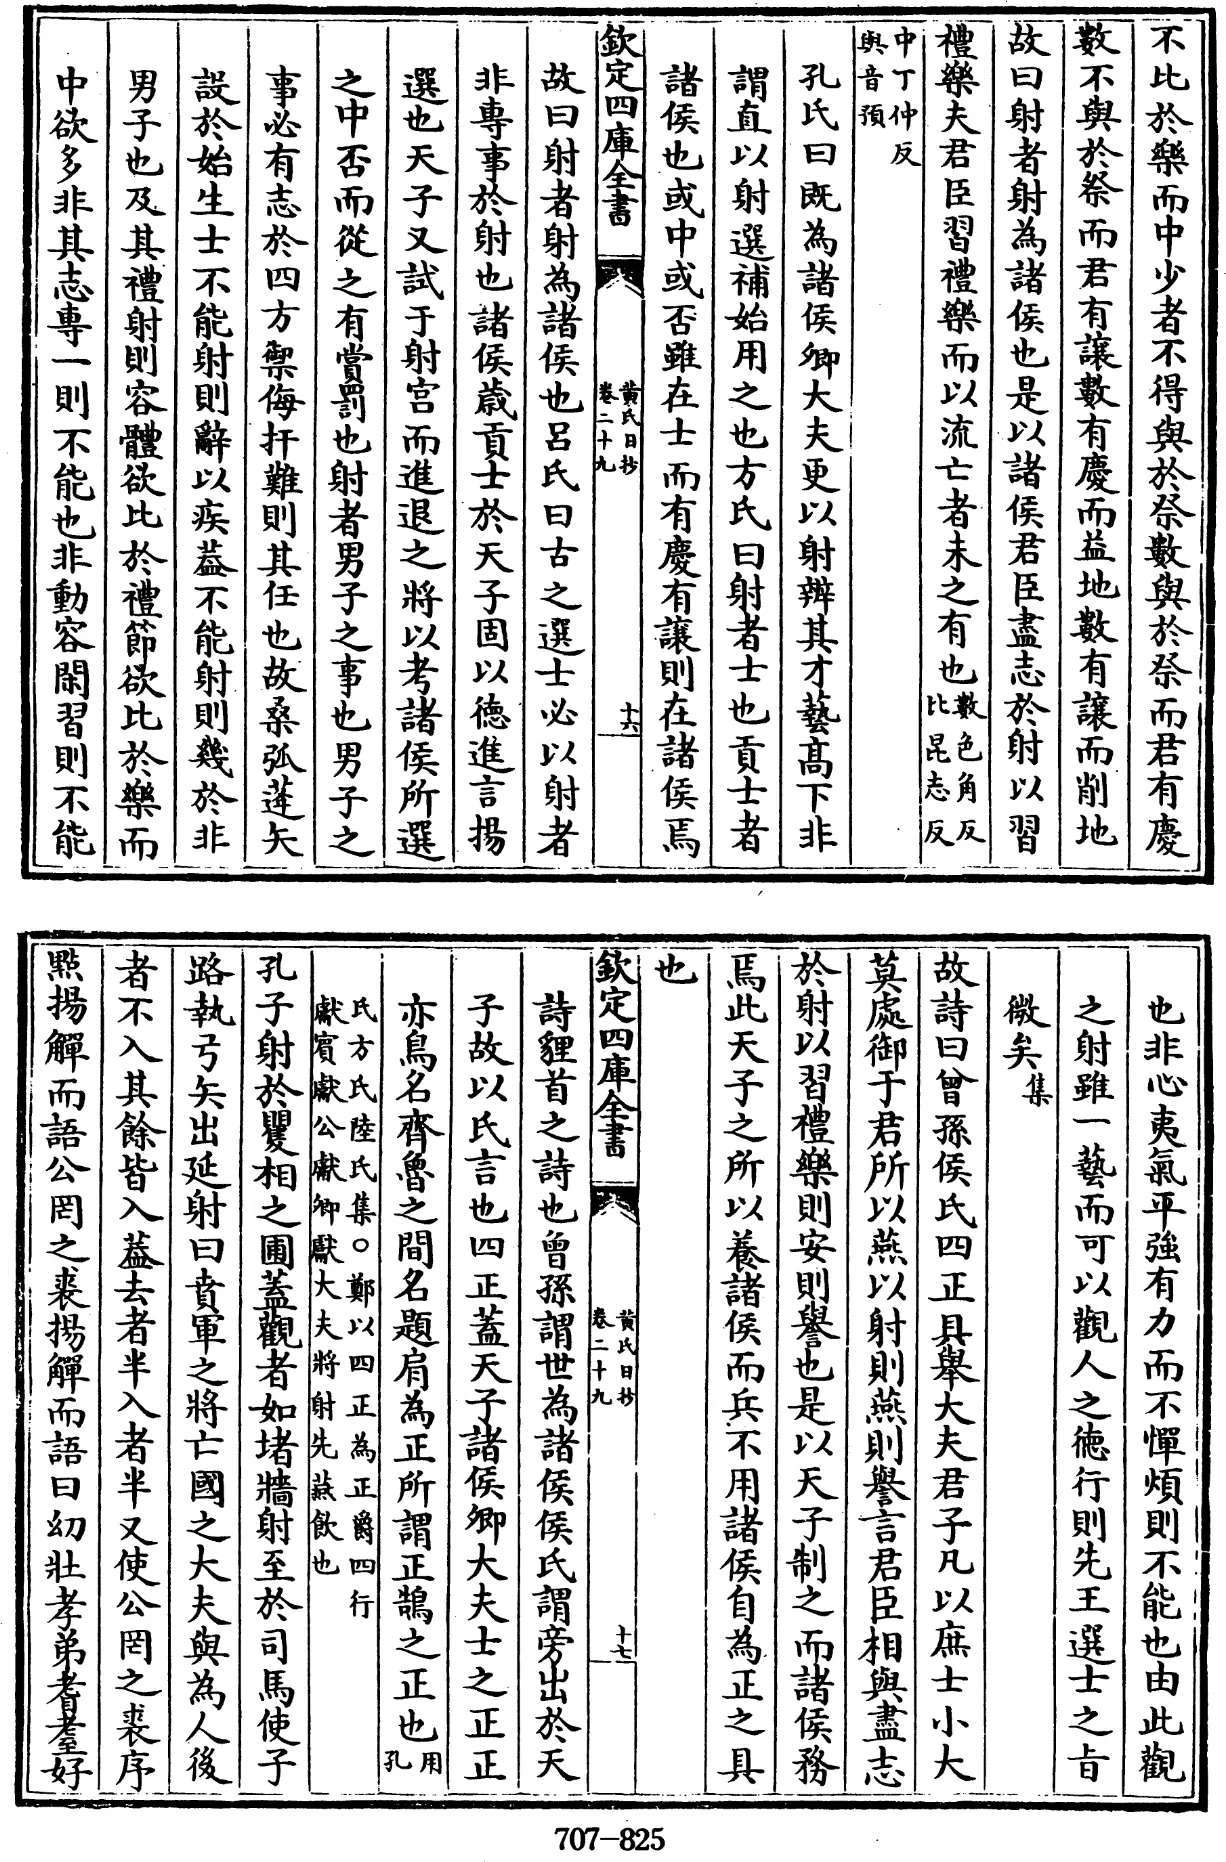 不比於樂而中少者不得與於祭數與於祭而君有慶
數不與於祭而君有讓數有慶而益地數有讓而削地
故曰射者射為諸侯也是以諸侯君臣盡志於射以習
禮樂夫君臣習禮樂而以流亡者未之有也數色角反比昆志反
中丁仲反與音預
孔氏曰既為諸侯卿大夫更以射辨其才藝高下非
謂直以射選補始用之也方氏曰射者士也貢士者
諸侯也或中或否雖在士而有慶有讓則在諸侯焉
欽定四庫全書
黃氏日抄
卷二十九
十六
故曰射者射為諸侯也呂氏曰古之選士必以射者
非專事於射也諸侯歲貢士於天子固以德進言揚
選也天子又試于射宮而進退之將以考諸侯所選
之中否而從之有賞罰也射者男子之事也男子之
事必有志於四方禦侮扞難則其任也故桑弧蓬矢
設於始生士不能射則辭以疾葢不能射則幾於非
男子也及其禮射則容體欲比於禮節欲比於樂而
中欲多非其志專一則不能也非動容閑習則不能
也非心夷氣平強有力而不憚煩則不能也由此觀
之射雖一藝而可以觀人之德行則先王選士之旨
微矣集
故詩曰曾孫侯氏四正具舉大夫君子凡以庶士小大
莫處御于君所以燕以射則燕則譽言君臣相與盡志
於射以習禮樂則安則譽也是以天子制之而諸侯務
焉此天子之所以養諸侯而兵不用諸侯自為正之具
也
欽定四庫全書
黃氏日抄
卷二十九
十七
詩貍首之詩也曾孫謂世為諸侯侯氏謂旁出於天
子故以氏言也四正蓋天子諸侯卿大夫士之正正
亦鳥名齊魯之間名題肩為正所謂正鵠之正也用孔
氏方氏陸氏集○鄭以四正為正爵四行
獻賓獻公獻卿獻大夫將射先燕飲也
孔子射於矍相之圃蓋觀者如堵牆射至於司馬使子
路執弓矢出延射曰賁軍之將亡國之大夫與為人後
者不入其餘皆入葢去者半入者半又使公罔之裘序
點揚觶而語公罔之裘揚觶而語曰幼壯孝弟耆耋好
707-825